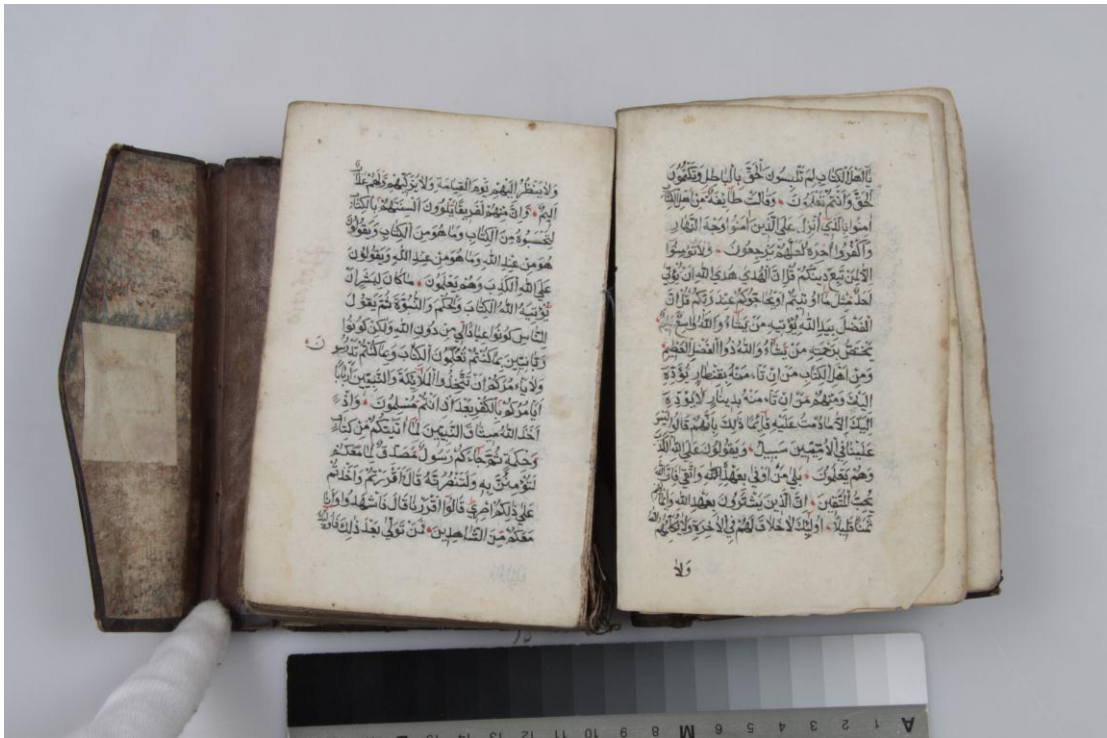 يَا أَهْلَ الْكِتَابِ لِمَ تَلْبِسُونَ الْحَقَّ بِالْبَاطِلِ وَتَكْتُمُونَ
الْحَقَّ وَأَنْتُمْ تَعْلَمُونَ وَقَالَتْ طَايِفَةٌ مِنْ أَهْلِ الْكِتَابِ
اٰمِنُوا بِالَّذِي أُنْزِلَ عَلَى الَّذِينَ اٰمَنُوا وَجْهَ النَّهَارِ
وَاكْفُرُوا اٰخِرَهُ لَعَلَّهُمْ يَرْجِعُونَ وَلَا تُؤْمِنُوا
إِلَّا لِمَنْ تَبِعَ دِينَكُمْ قُلْ إِنَّ الْهُدَى هُدَى اللهِ أَنْ يُؤْتَى
أَحَدٌ مِثْلَ مَا أُوتِيتُمْ أَوْ يُحَاجُّوكُمْ عِنْدَ رَبِّكُمْ قُلْ إِنَّ
الْفَضْلَ بِيَدِ اللهِ يُؤْتِيهِ مَنْ يَشَاءُ وَاللهُ وَاسِعٌ عَلِيمٌ
يَخْتَصُّ بِرَحْمَتِهِ مَنْ يَشَاءُ وَاللهُ ذُو الْفَضْلِ الْعَظِيمِ
وَمِنْ أَهْلِ الْكِتَابِ مَنْ إِنْ تَأْمَنْهُ بِقِنْطَارٍ يُؤَدِّهِ
إِلَيْكَ وَمِنْهُمْ مَنْ إِنْ تَأْمَنْهُ بِدِينَارٍ لَا يُؤَدِّهِ
إِلَيْكَ إِلَّا مَا دُمْتَ عَلَيْهِ قَائِمًا ذَلِكَ بِأَنَّهُمْ قَالُوا لَيْسَ
عَلَيْنَا فِي الْأُمِّيِّينَ سَبِيلٌ وَيَقُولُونَ عَلَى اللهِ الْكَذِبَ
وَهُمْ يَعْلَمُونَ بَلَى مَنْ أَوْفَى بِعَهْدِهِ وَاتَّقَى فَإِنَّ اللهَ
يُحِبُّ الْمُتَّقِينَ إِنَّ الَّذِينَ يَشْتَرُونَ بِعَهْدِ اللهِ وَأَيْمَانِهِمْ
ثَمَنًا قَلِيلًا أُولَئِكَ لَا خَلَاقَ لَهُمْ فِي الْاٰخِرَةِ وَلَا يُكَلِّمُهُمُ اللهُ
وَلَا
وَلَا يَنْظُرُ إِلَيْهِمْ يَوْمَ الْقِيَامَةِ وَلَا يُزَكِّيهِمْ وَلَهُمْ عَذَابٌ
أَلِيمٌ وَإِنَّ مِنْهُمْ لَفَرِيقًا يَلْوُونَ أَلْسِنَتَهُمْ بِالْكِتَابِ
لِتَحْسَبُوهُ مِنَ الْكِتَابِ وَمَا هُوَ مِنَ الْكِتَابِ وَيَقُولُونَ
هُوَ مِنْ عِنْدِ اللهِ وَمَا هُوَ مِنْ عِنْدِ اللهِ وَيَقُولُونَ
عَلَى اللهِ الْكَذِبَ وَهُمْ يَعْلَمُونَ مَا كَانَ لِبَشَرٍ أَنْ
يُؤْتِيَهُ اللهُ الْكِتَابَ وَالْحُكْمَ وَالنُّبُوَّةَ ثُمَّ يَقُولَ
لِلنَّاسِ كُونُوا عِبَادًا لِي مِنْ دُونِ اللهِ وَلَكِنْ كُونُوا
رَبَّانِيِّينَ بِمَا كُنْتُمْ تُعَلِّمُونَ الْكِتَابَ وَبِمَا كُنْتُمْ تَدْرُسُونَ
وَلَا يَأْمُرَكُمْ أَنْ تَتَّخِذُوا الْمَلَايِكَةَ وَالنَّبِيِّينَ أَرْبَابًا
أَيَأْمُرُكُمْ بِالْكُفْرِ بَعْدَ إِذْ أَنْتُمْ مُسْلِمُونَ وَإِذْ
أَخَذَ اللهُ مِيثَاقَ النَّبِيِّينَ لَمَا اٰتَيْتُكُمْ مِنْ كِتَابٍ
وَحِكْمَةٍ ثُمَّ جَاءَكُمْ رَسُولٌ مُصَدِّقٌ لِمَا مَعَكُمْ
لَتُؤْمِنُنَّ بِهِ وَلَتَنْصُرُنَّهُ قَالَ أَأَقْرَرْتُمْ وَأَخَذْتُمْ
عَلَى ذَلِكُمْ إِصْرِي قَالُوا أَقْرَرْنَا قَالَ فَاشْهَدُوا وَأَنَا
مَعَكُمْ مِنَ الشَّاهِدِينَ فَمَنْ تَوَلَّى بَعْدَ ذَلِكَ فَأُولَئِكَ
A 1 2 3 4 5 6 M 8 9 10 11 12 13 14 15